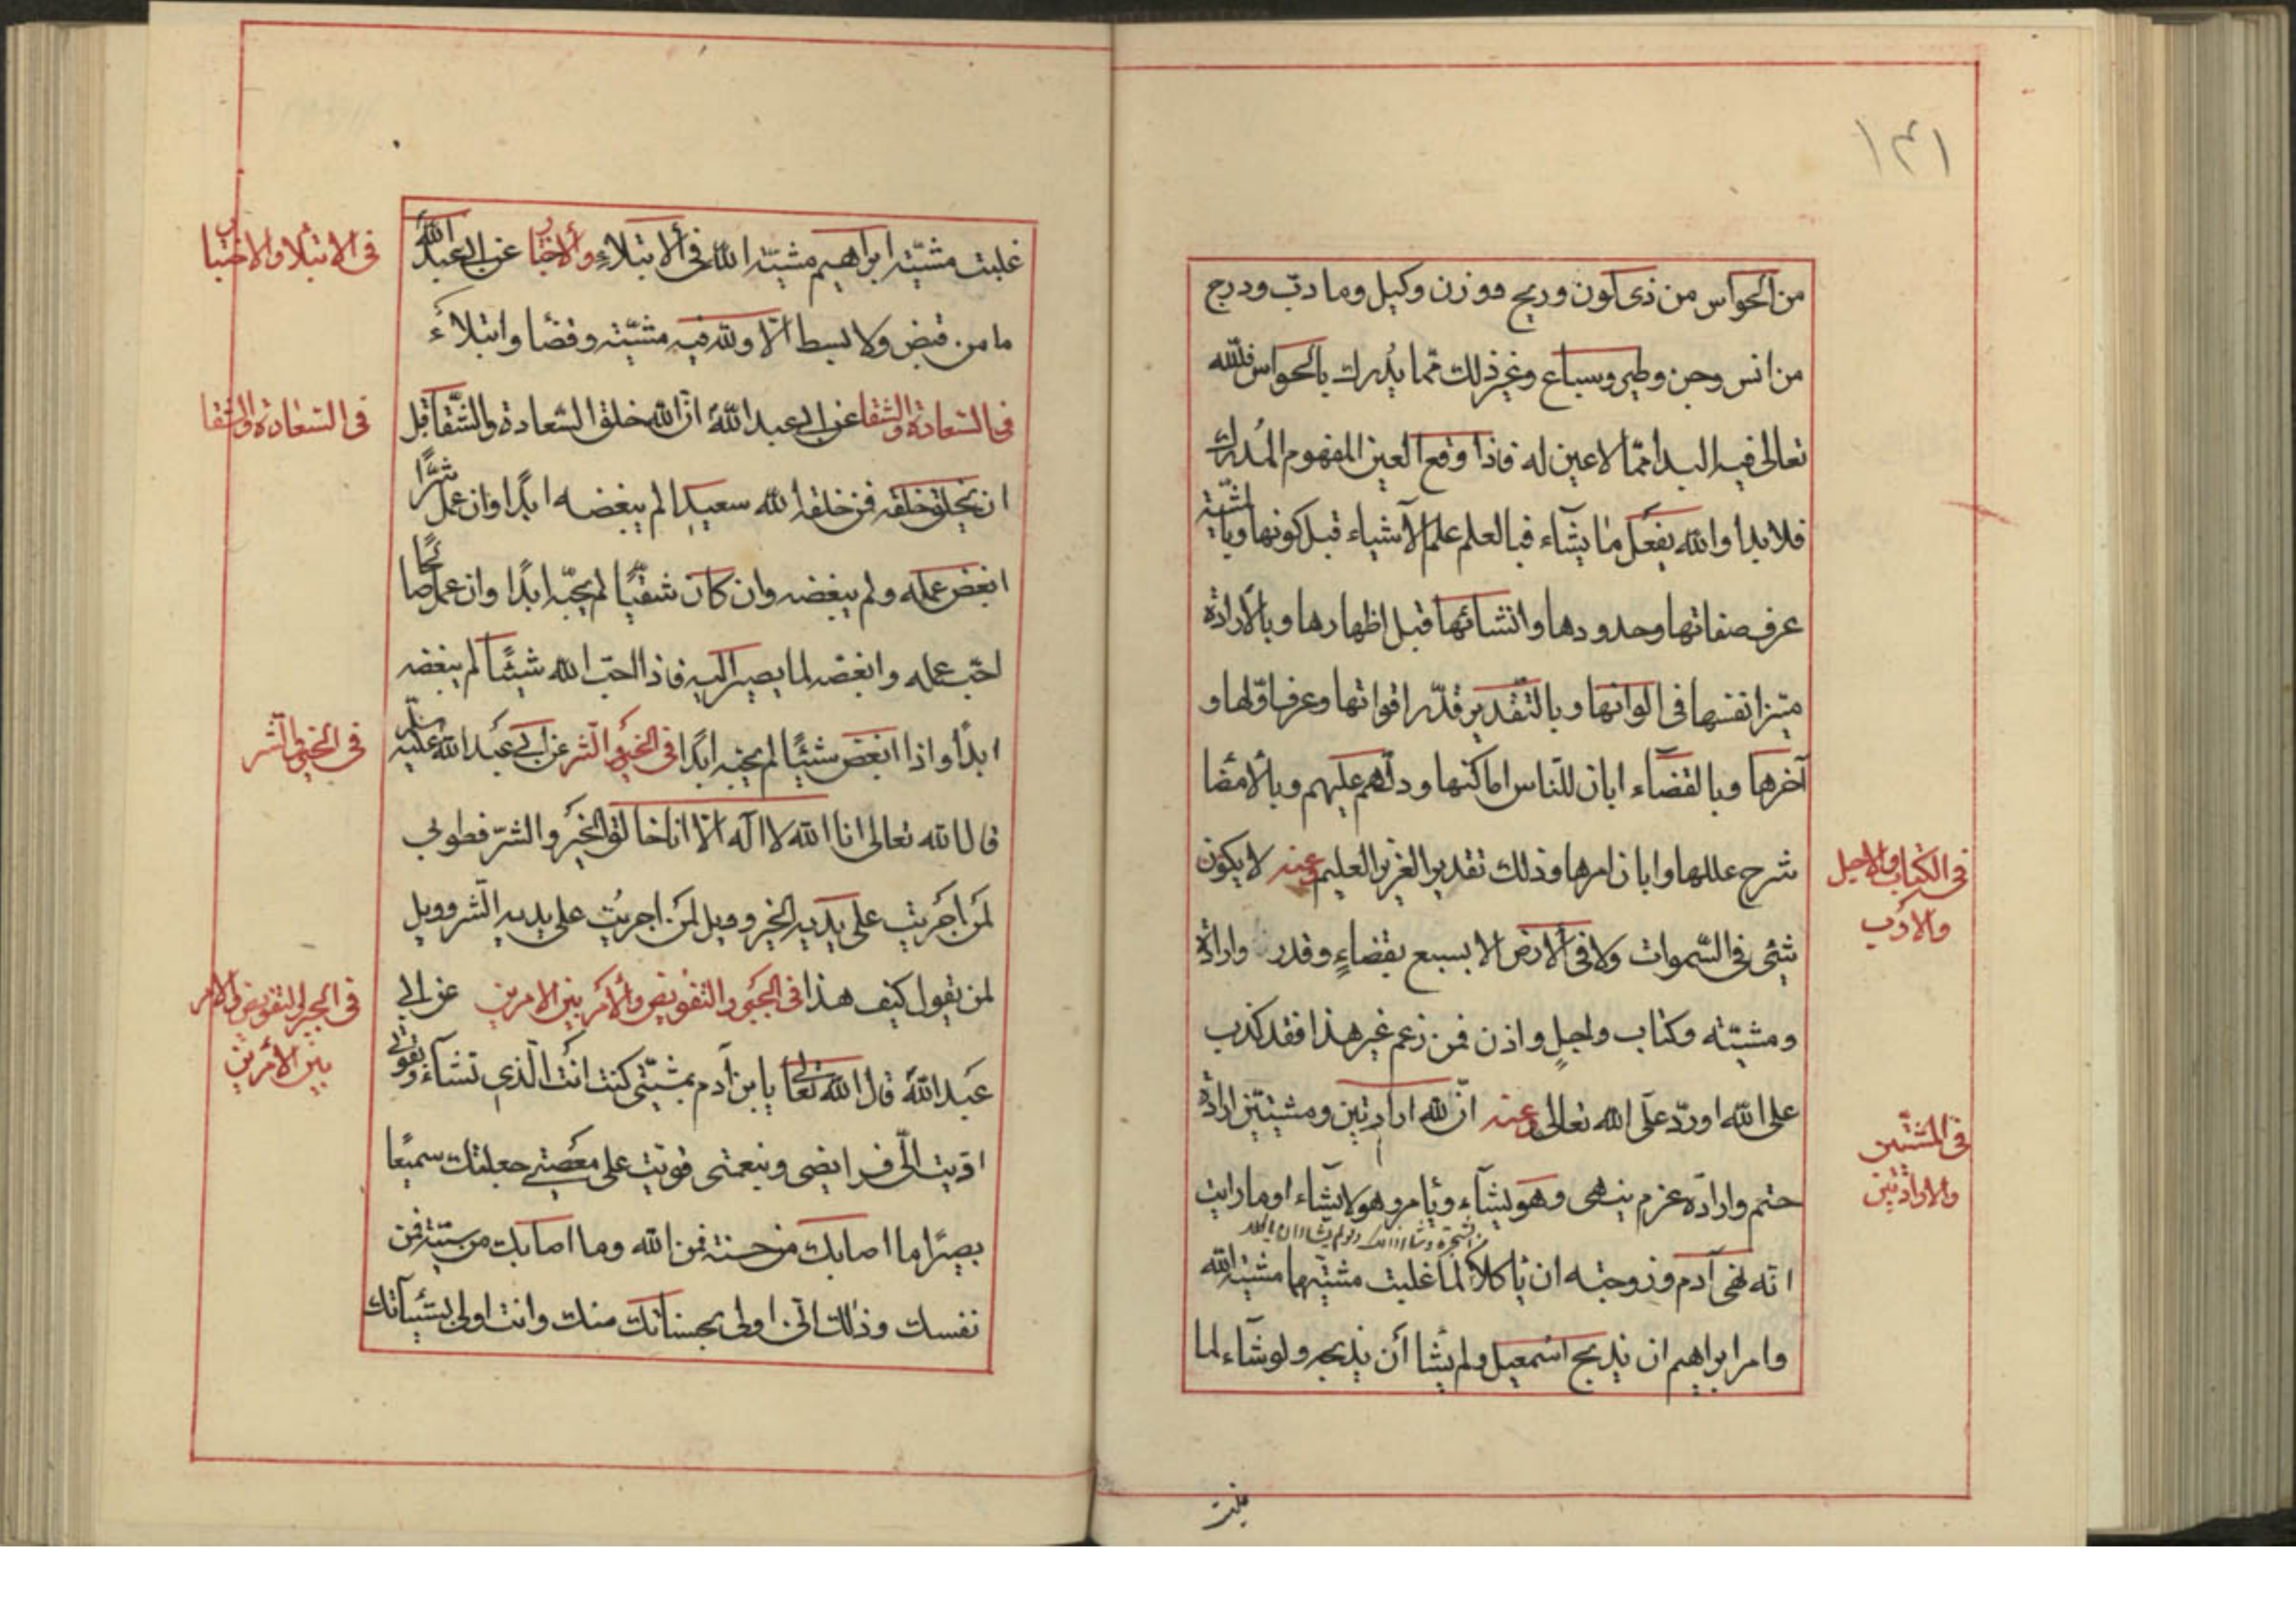 ١٣١
من الحواس من ذى لون وريح ووزن وكيل وما دبّ ودرج
من انس وجن وطير وسباع وغير ذلك ممّا يُدرك بالحواس فللّه
تعالى فيه البدا ممّا لا عين له فاذا وقع العين المفهوم المُدرك
فلا بدا والله يفعل ما يشآء فبالعلم علم الأشياء قبل كونها وبالمشيّة
عرف صفاتها وحدودها وانشائها قبل اظهارها وبالأرادة
ميّز انفسها فى الوانها وبالتّقدير قدّر اقواتها وعرف اوّلها و
آخرها وبالقضآء ابان للنّاس اماكنها ودلّهم عليهم وبالأمضا
شرح عللها وابان امرها وذلك تقدير العزيز العليم وعنه لا يكون
فى الكتاب والاجل
والاذن
شئ فى السّموات ولا فى الأرض الا بسبع بقضاءٍ وقدر وارادة
ومشيّته وكتاب واجلٍ واذن فمن زعم غير هذا فقد كذب
على الله او ردّ على الله تعالى وعنه انّ لله ارادتين ومشيتين ارادة
فى المشيّتين
والارادتين
حتم وارادة عزم ينهى وهو يشآء ويأمر وهو لا يشآء اوما رايت
انّه نهى آدم وزوجته ان ياكلا لما غلبت مشيّتهما مشيّة الله
وامر ابراهيم ان يذبح اسمعيل ولم يشا أن يذبحه ولو شآء لما
غلبت
غلبت مشيّة ابراهيم مشيّة الله فى ألابتلاءِ وألاختبار عن ابى عبد اللهؑ
فى الابتلا والاختبار
ما من قبض ولا بسط الّا ولله فيه مشيّته وقضا وابتلاء
فى السّعادة والشقا عن ابى عبد اللهؑ انّ الله خلق السّعادة والشّقا قبل
فى السّعادة والشقا
ان يخلق خلقه فمن خلقه الله سعيدا لم يبغضه ابدًا وان عمل شرًّا
ابغض عمله ولم يبغضه وان كان شقيًّا لم يحبّه ابدًا وان عمل صالحًا
احبّ عمله وابغضه لما يصير اليه فاذا احبّ الله شيئًا لم يبغضه
ابدًا واذا ابغض شيئًا لم يحبه ابدًا فى الخير والشر عن ابى عبد الله عليه
فى الخير والشر
قال الله تعالى انا الله لا اله الّا انا خالق الخير والشرّ فطوبى
لمن اجريت على يديه الخير وويل لمن اجريت على يديه الشر وويل
لمن يقول كيف هذا فى الجبر والتفويض وألامر بين الامرين عن ابى
فى الجبر والتفويض والامر
بين الأمرين
عبد اللهؑ قال الله تعالى يابن آدم بمشيّتى كنت انت الّذى تشآء وبقوتى
اديت الىّ فرايضى وبنعمتى قويت على معصيتى جعلتك سميعًا
بصيرًا ما اصابك من حسنة فمن الله وما اصابك من سيّئة فمن
نفسك وذلك انّى اولى بحسناتك منك وانت اولى بسيّئاتك